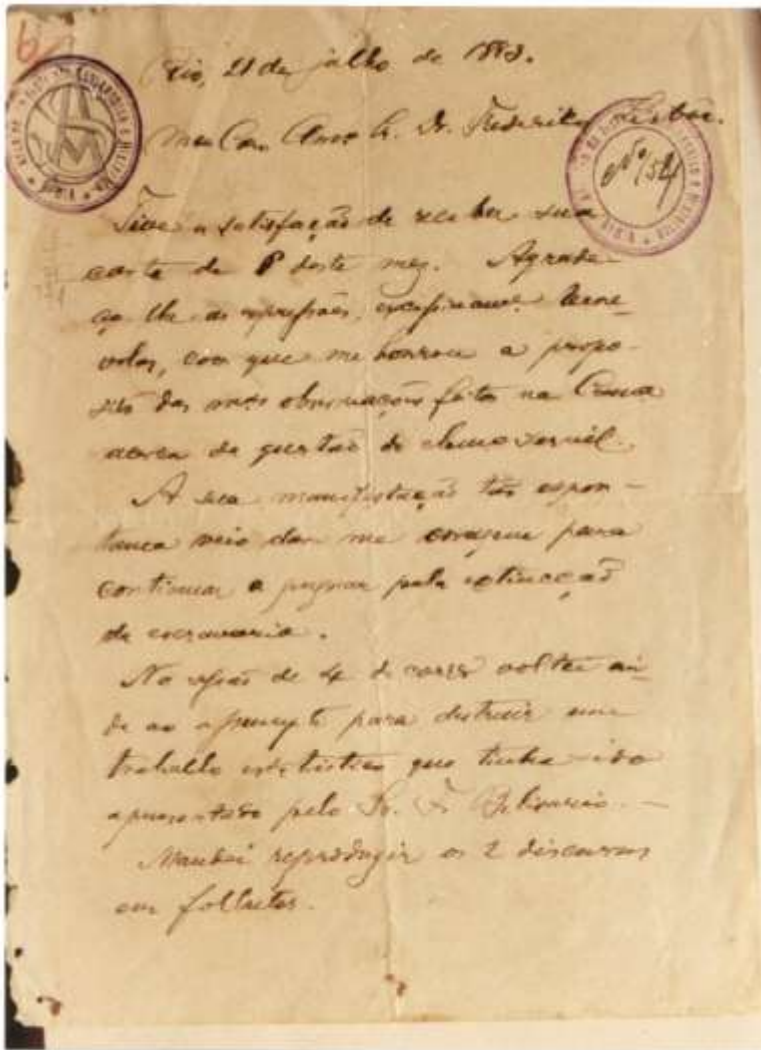 Rio, 21 de julho de 1883.
Meu Caro Amo Sr. Dr. Frederico Lisbôa.
Nº 154
Tive a satisfação de receber sua
carta de 8 deste mez. Agrade-
ço lhe as expressões, benevo-
volas, com que me honrou a propo-
sito das observações feitas na Camara
acerca da questão do elemento servil.
A sua manifestação tão espon-
tanea veio dar me coragem para
continuar a pugnar pela extincção
da escravaria.
Na sessão de 4 do corre voltei ain-
da ao assumpto para destruir um
trabalho estatistico que tinha sido
apresentado pelo Sr. F. Belisario. —
Mandei reproduzir os 2 discursos
em folhetos.